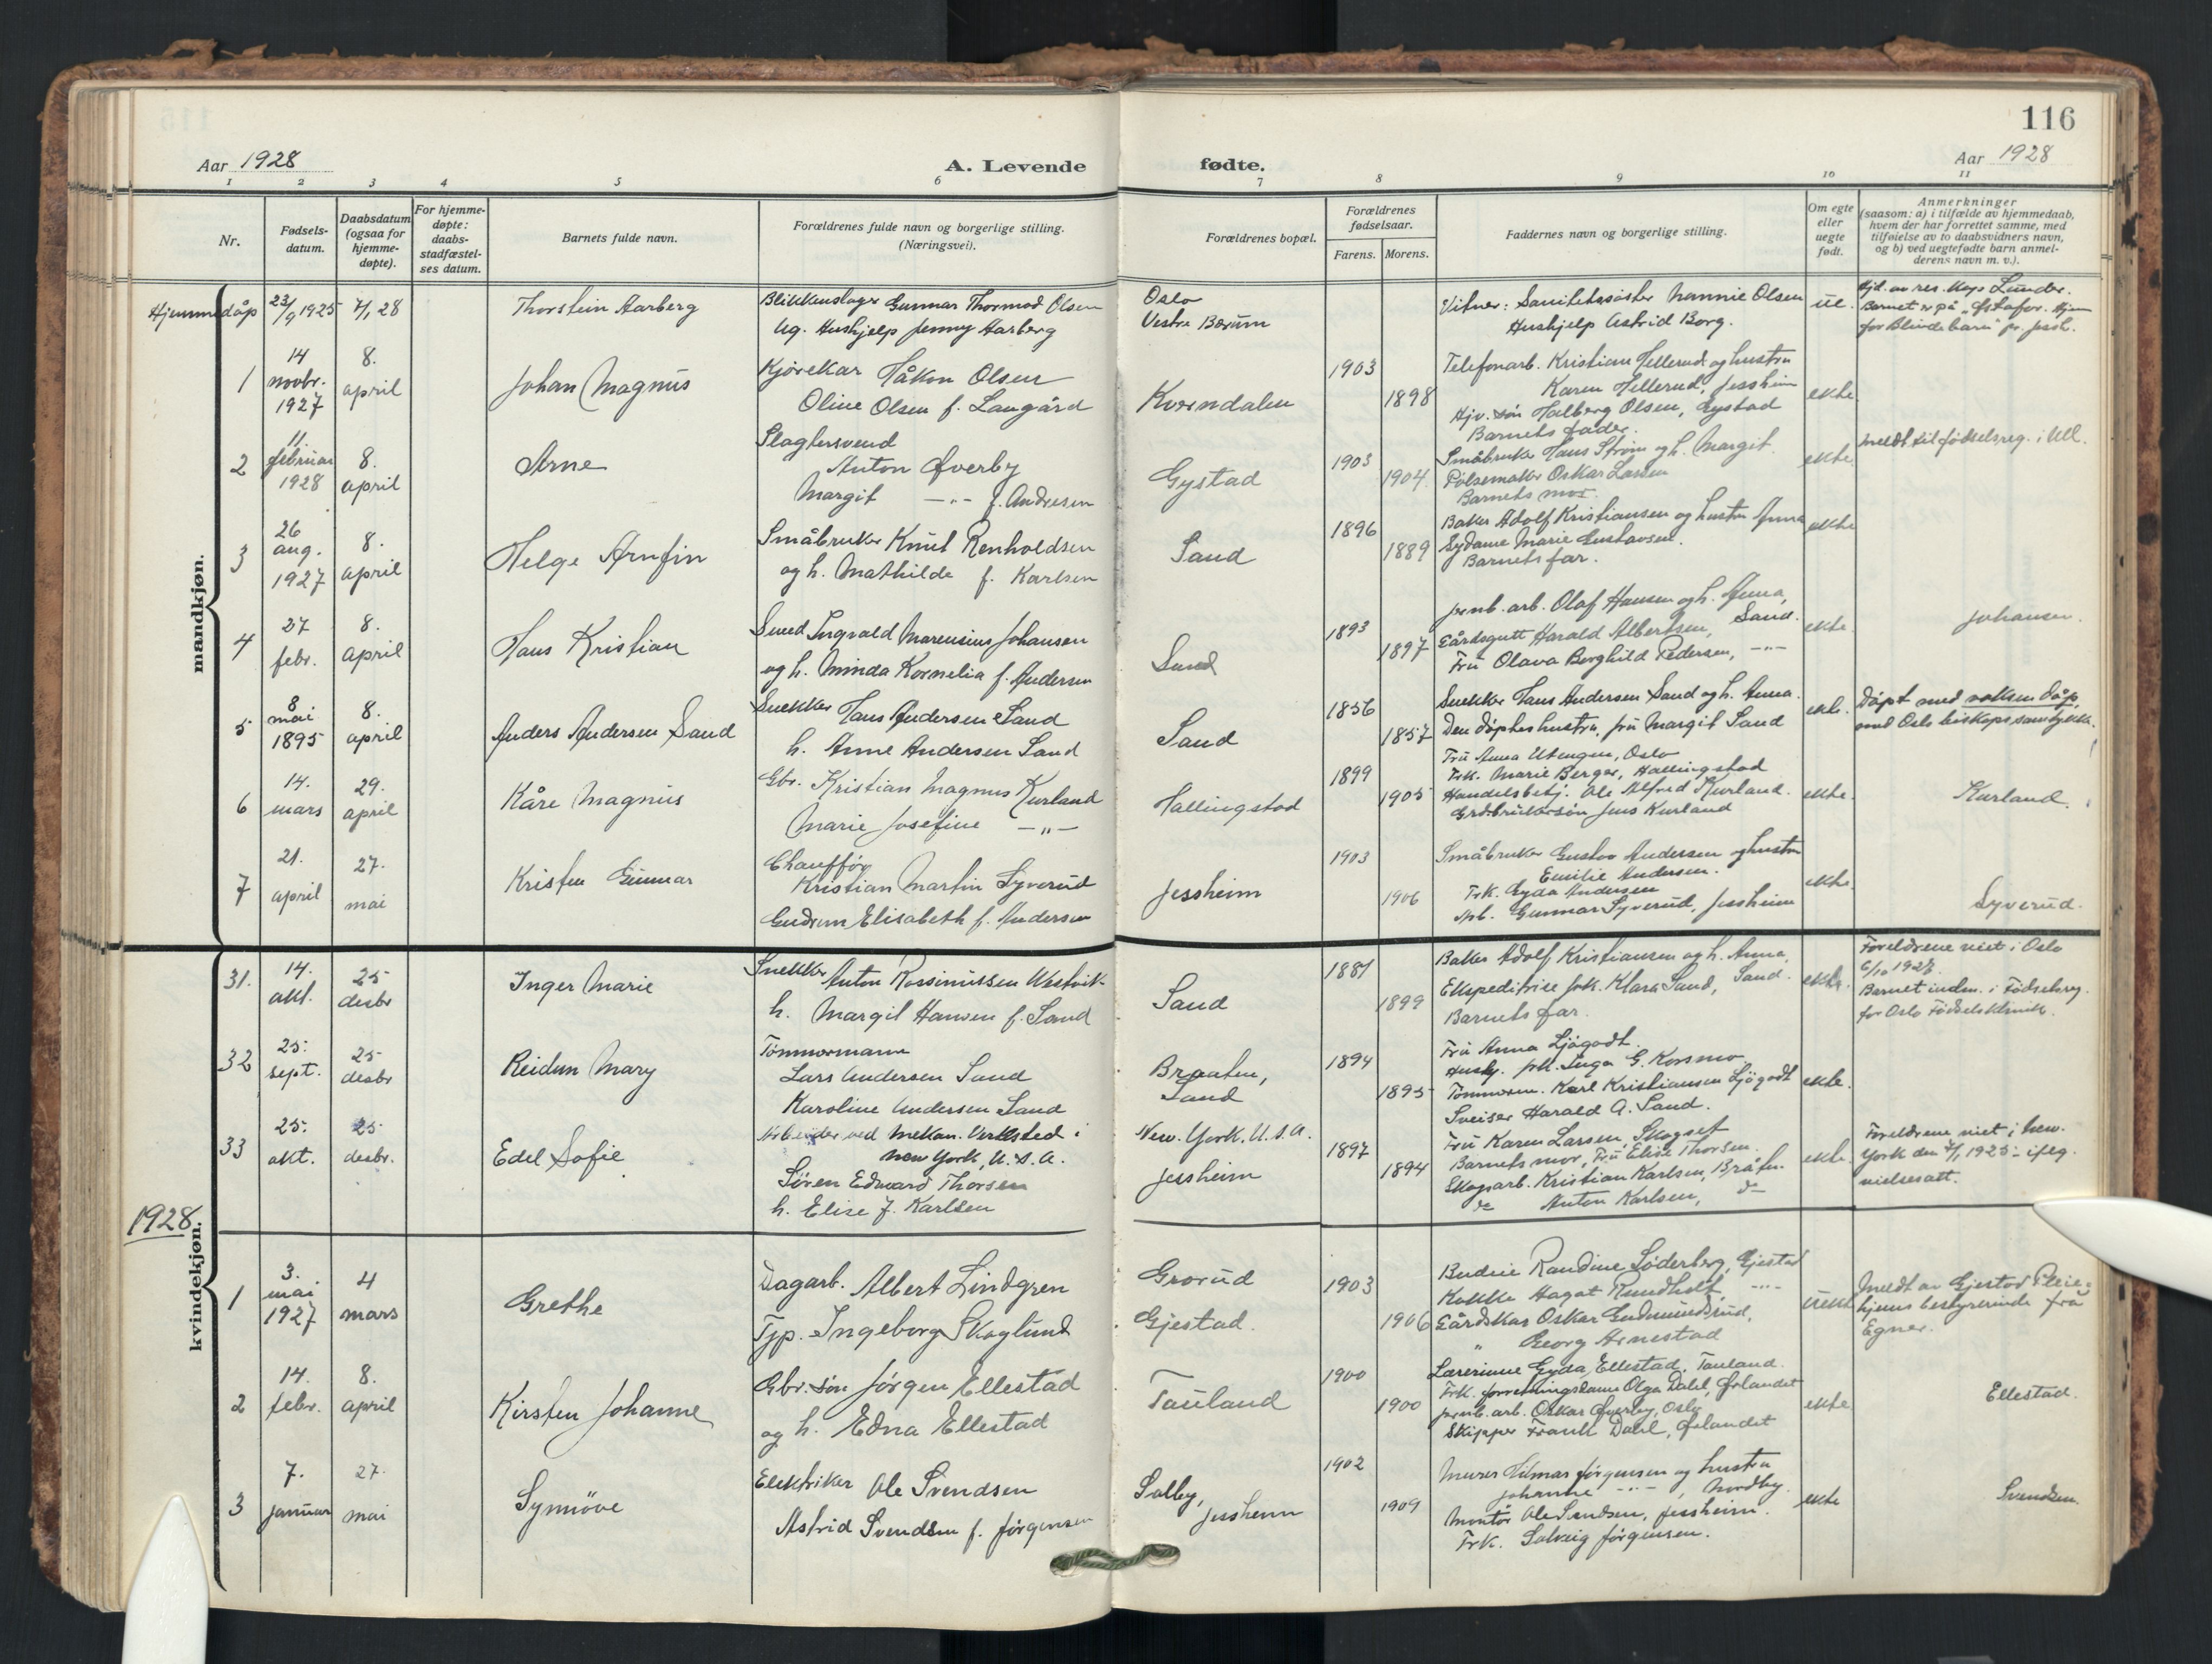 116
Aar 1928
A. Levende
fødte.
Aar 1928
1 2 3 4 5 6 7 8 9 10 11
Nr.
Fødsels-
datum.
Daabsdatum
(ogsaa for
hjemme-
døpte).
For hjemme-
døpte:
daabs-
stadfæstel-
ses datum.
Barnets fulde navn.
Forældrenes fulde navn og borgerlige stilling.
(Næringsvei).
Forældrenes bopæl.
Forældrenes
fødselsaar.
Farens. Morens.
Faddernes navn og borgerlige stilling.
Om egte
eller
uegte
født.
Anmerkninger
(saasom: a) i tilfælde av hjemmedaab,
hvem der har forrettet samme, med
tilføielse av to daabsvidners navn,
og b) ved uegtefødte barn anmel-
derens navn m. v.).
mandkjøn.
Hjemmedåp 23/9 1925 7/1 28
Thorstein Aarberg
Blikkenslager Gunnar Thormod Olsen
Ug. Hushjelp Jenny Aarberg
Oslo
Vestre Bærum
Vitner: Sanitetssøster Nannie Olsen
Hushjelp Astrid Borg.
ue.
Hjd. av res. kap. Lunder.
Barnet er på "Østafor. Hjem
for Blinde barn" pr. Jessh.
1
14
novbr.
1927
8.
april
Johan Magnus
Kjørekar Håkon Olsen
Oline Olsen f. Laugård
Kverndalen
1903
1898
Telefonarb. Kristian Hellerud og hustru
Karen Hellerud, Jessheim
Hjv. søn Halberg Olsen, Gystad
Barnets fader.
ekte
2
11.
februar
1928
8.
april
Arne
Slagtersvend
Anton Øverby
Margit —"— f. Andresen
Gystad
1903
1904
Småbruker Hans Strøm og h. Margit.
Pølsemaker Oskar Larsen
Barnets mor.
ekte
meldt til fødselsreg. i Ull.
3
26
aug.
1927
8.
april
Helge Arnfin
Småbruker Knut Renholdsen
og h. Mathilde f. Karlsen
Sand
1896
1889
Baker Adolf Kristiansen og hustru Anna
Sydame Marie Gustavsen.
Barnets far.
ekte
4
27
febr.
8.
april
Hans Kristian
Smed Ingvald Marensius Johansen
og h. Minda Kornelia f. Andersen
Sand
1893
1897
Jernb. arb. Olaf Hansen og h. Anna,
Sand.
Gårdsgutt Harald Albertsen,
Fru Olava Borghild Pedersen, —"—
ekte
Johansen.
5
8
mai
1895
8.
april
Anders Andersen Sand
Snekker Hans Andersen Sand
h. Anne Andersen Sand
Sand
1856
1857
Snekker Hans Andersen Sand og h. Anna.
Den døptes hustru, fru Margit Sand
ekte.
Døpt med voksen dåp,
med Oslo biskops samtykke.
6
14.
mars
29.
april
Kåre Magnus
Gbr. Kristian Magnus Kurland
Marie Josefine —"—
Hallingstad
1899
1905
Fru Anna Utengen, Oslo
Frk. Marie Berger, Hallingstad
Handelsbetj. Ole Alfred Kurland.
Grdbrukersøn Jens Kurland
ekte.
Kurland.
7
21.
april
27.
mai
Kristen Gunnar
Chauffør
Kristian Martin Syverud
Gudrun Elisabeth f. Andersen
Jessheim
1903
1906
Småbruker Gustav Andersen og hustru
Emilie Andersen.
Frk. Gyda Andersen
Arb. Gunnar Syverud, Jessheim
ekte
Syverud.
kvindekjøn.
31.
14.
okt.
25
desbr
Inger Marie
Snekker Anton Rasmussen Westvik
h. Margit Hansen f. Sand
Sand
1881
1899
Baker Adolf Kristiansen og h. Anna,
Ekspeditrise frk. Klara Sand, Sand.
Barnets far.
ekte.
Foreldrene viet i Oslo
6/10 1927.
Barnet indm. i Fødselsreg.
for Oslo Fødselsklinik.
32
25.
sept.
25
desbr
Reidun Mary
Tømmermann
Lars Andersen Sand
Karoline Andersen Sand
Braaten,
Sand
1894
1895
Fru Anna Ljøgodt.
Hushj. frk. Inga G. Korsmo
Tømmerm. Karl Kristiansen Ljøgodt
Sveiser Harald A. Sand.
ekte.
33
25.
okt.
25
desbr.
Edel Sofie
Arbeider ved mekan. Verksted i
New York, U.S.A.
Søren Edward Thorsen
h. Elise f. Karlsen
New. York. U.S.A.
Jessheim
1897
1894
Fru Karen Larsen, Skogset
Barnets mor, Fru Elise Thorsen.
Skogsarb. Kristian Karlsen, Bråten.
do Anton Karlsen, do
ekte.
Foreldrene viet i New.
York den 1925 - ifølg.
vielsesatt.
1928.
1
3.
mai
1927
4
mars
Grethe
Dagarb. Albert Lindgren
Tjp. Ingeborg Skoglund
Grorud
Gjestad.
1903
1906
Budeie Randine Søderberg, Gjestad
Kokke Aagat Rundholt, —"—
Gårdskar Oskar Gudmundsrud,
" Georg Arnestad
uekte
Meldt av Gjestad Pleie-
hjems bestyrerinde frø
Egner.
2
14.
febr.
8.
april
Kirsten Johanne
Gbr. søn Jørgen Ellestad
og h. Edna Ellestad
Tauland
1900
1900
Lærerinne Gyda Ellestad, Tauland.
Frk. forretningsdame Olga Dahl, Ørlandet
Jernb. arb. Oskar Øverby, Oslo
Skipper Frank Dahl, Ørlandet
ekte
Ellestad.
3
7.
januar
27.
mai
Synnöve
Elektriker Ole Svendsen
Astrid Svendsen f. Jørgensen
Solby,
Jessheim
1902
1909
Murer Hilmar Jørgensen og hustru
Johanne —"—, Nordby.
Montør Ole Svendsen, Jessheim.
Frk. Solveig Jørgensen.
ekte
Svendsen.